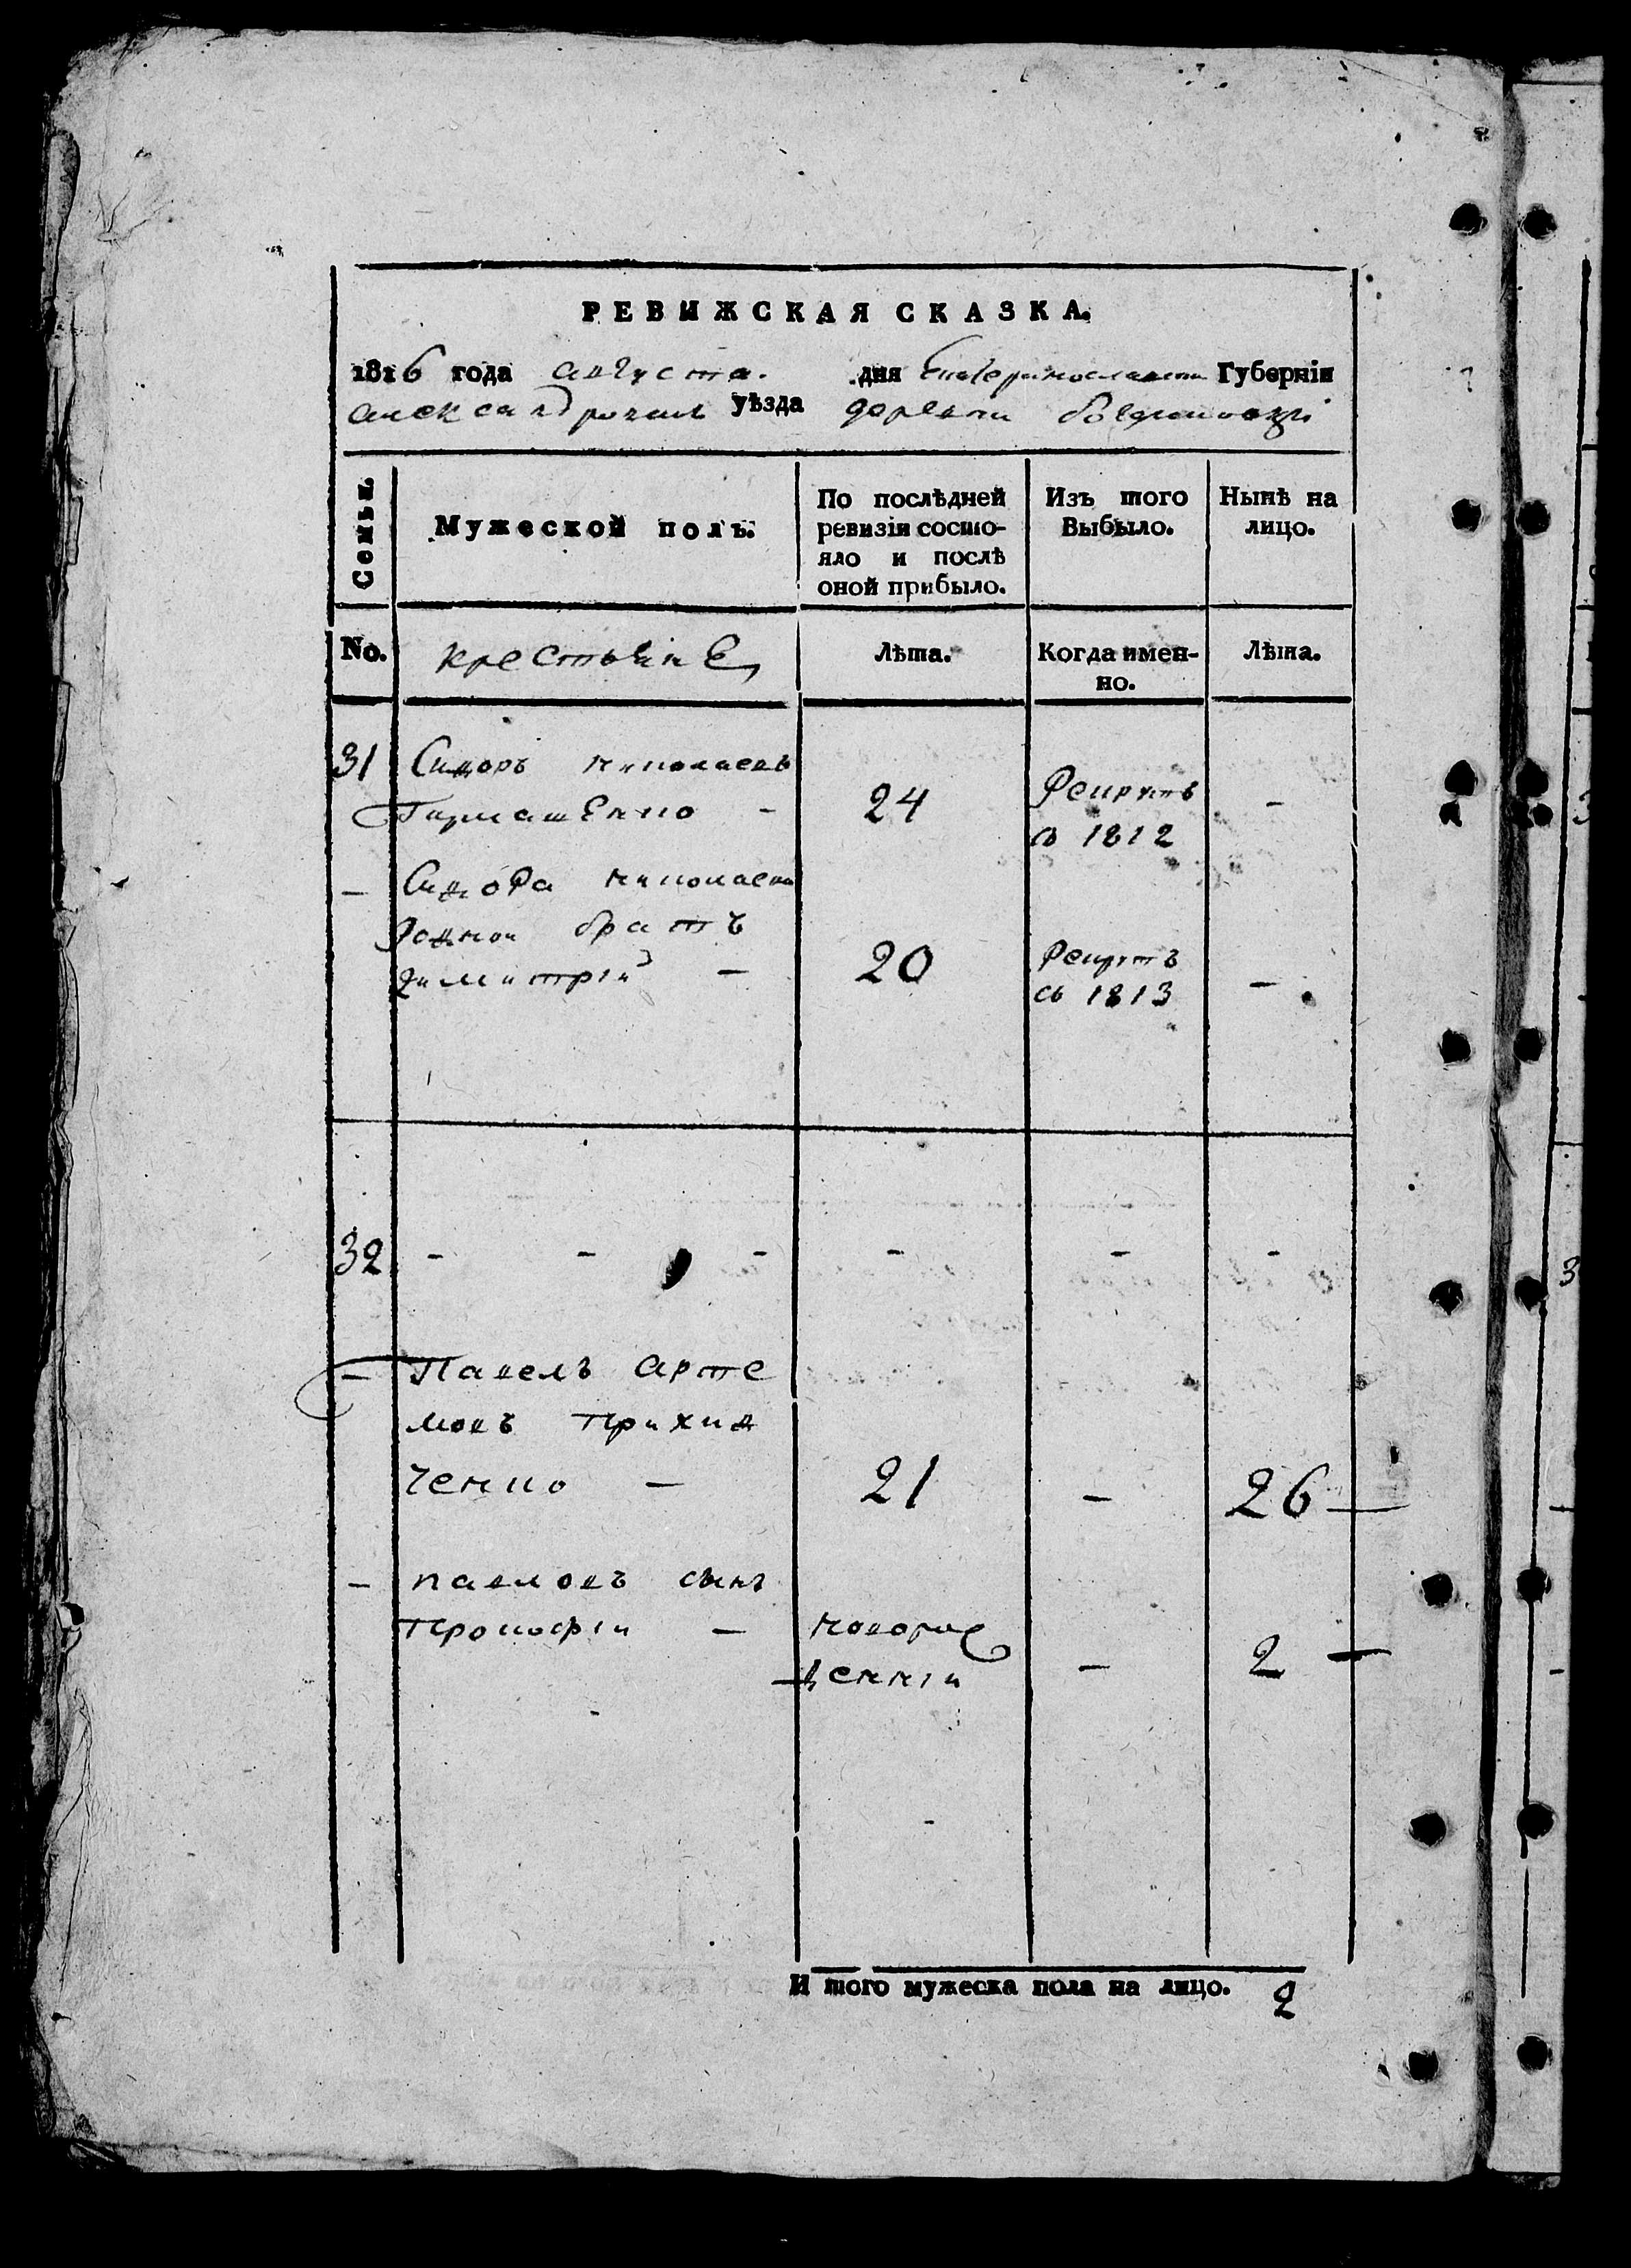 РЕВИЖСКАЯ СКАЗКА.
1816 года августа. дня Екатеринославской Губернiи
александровскаго уѣзда деревни
Семьи.
Мужеской полъ.
По послѣдней
ревизiи состо-
яло и послѣ
оной прибыло.
Изъ того
Выбыло.
Нынѣ на
лицо.
No.
крестьяне
Лѣта.
Когда имен-
но.
Лѣта.
31 Сидоръ николаевъ
Гармашенко - 24 Рекрутъ -
в 1812
- Сидора николаева
родной братъ
димитрiй - 20 Рекрутъ -
въ 1813
32 - - - - - -
- Павелъ арте
мовъ Прихид
ченко - 21 - 26
- павловъ сынъ
Прокофiи - новорож
денныи - 2
И того мужеска пола на лицо. 2